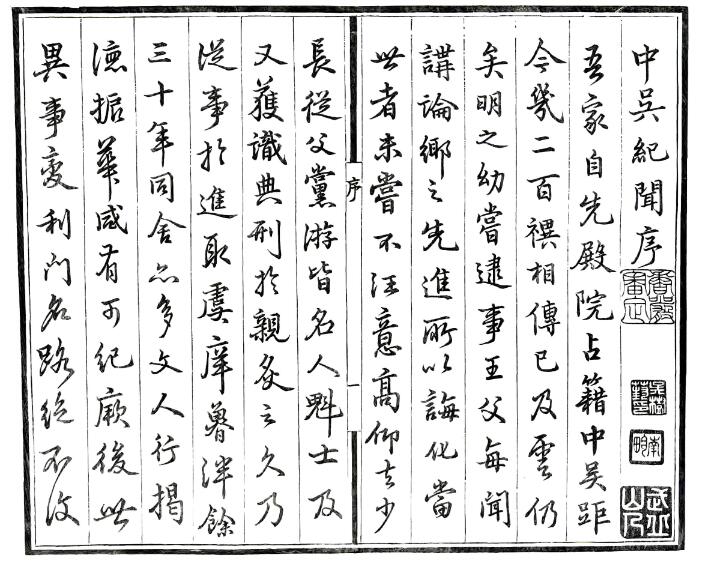 中吳紀聞序
武丘山人
吾家自先殿院占籍中吳距
今幾二百禩相傳已及雲仍
矣明之幼嘗逮事王父每聞
講論鄉之先進所以誨化當
世者未嘗不注意高仰少
序
一
長從父黨游皆名人魁士及
又獲識典刑於親炙之久乃
從事於進取虞庠魯泮餘
三十年同舍亦多文人行揭
德振華咸有可紀厥後世
異事變利門名路絕不